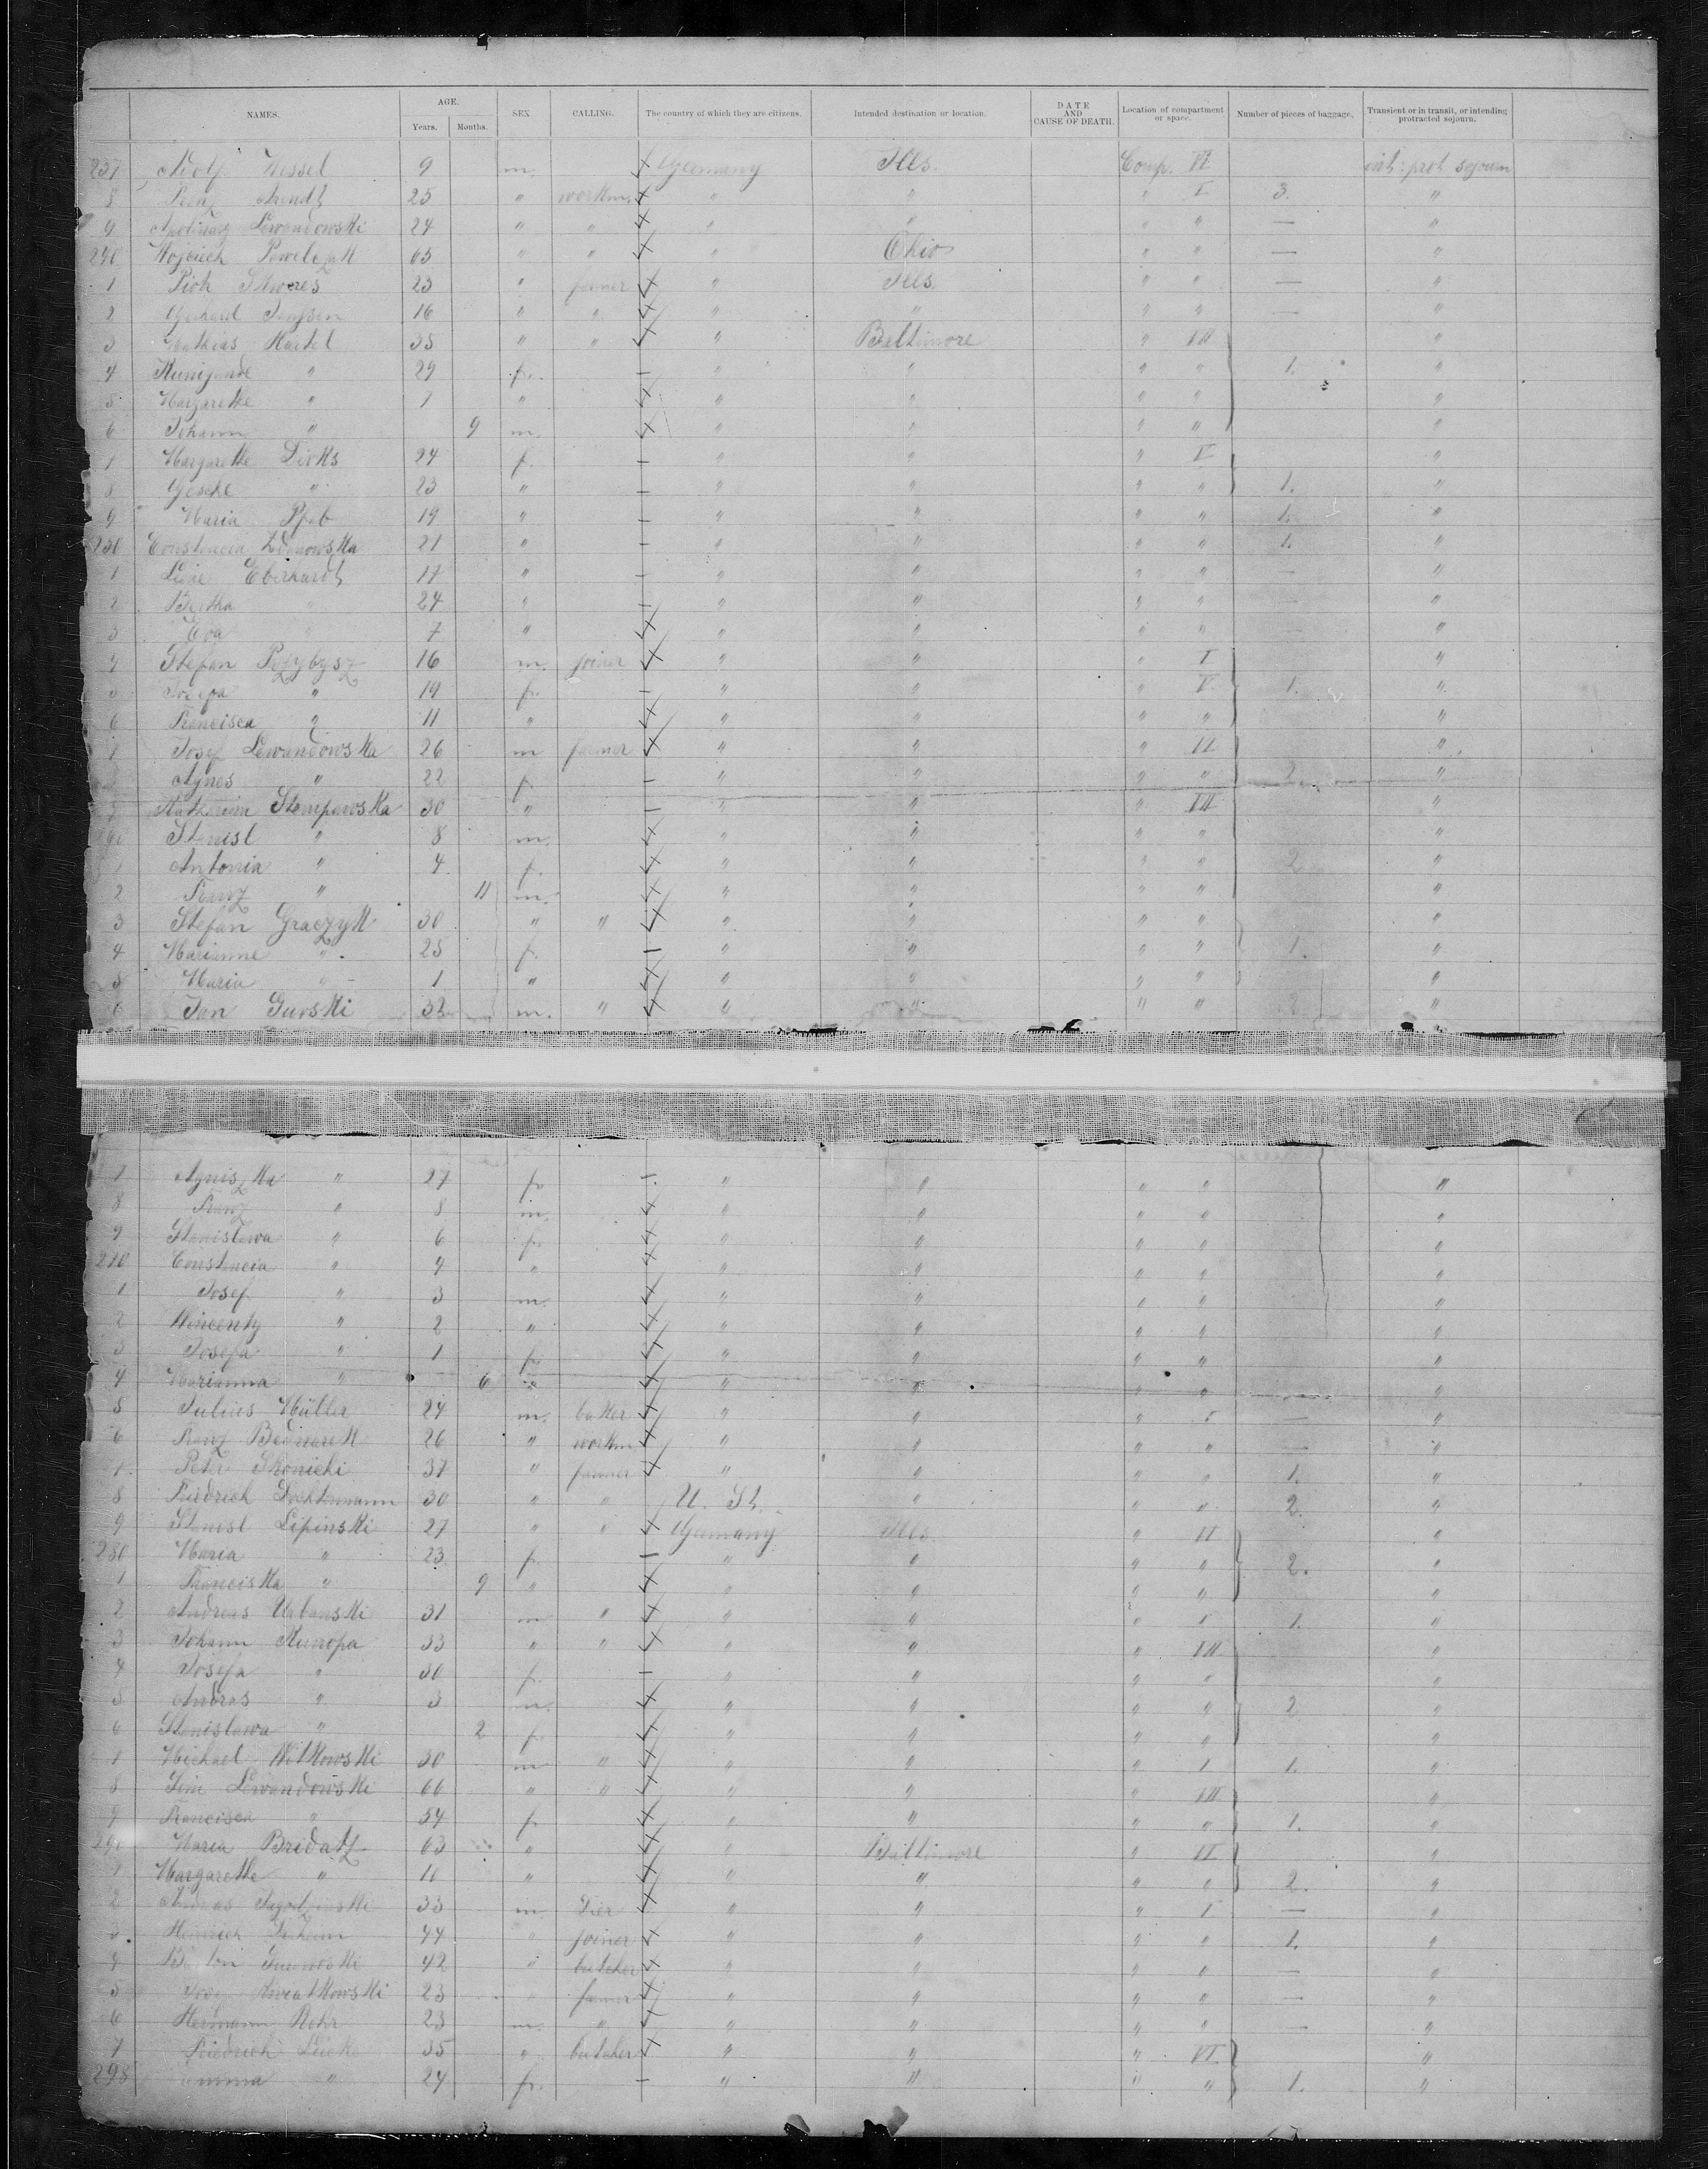 NAMES. AGE. Years. Months. SEX CALLING. The country of which they are citizens. Intended destination or location. DATE AND CAUSE OF DEATH. Location of compartment or space. Number of pieces of baggage. Transient or in transit, or intending protracted sojourn.
237 Adolf Wessel 9 m. Germany Ills. Comp. VI int: prot sojourn
8 Arendt 25 " workm. " " " I 3. "
9 Lewandowski 24 " " " " " " — "
240 Wojciech Pawelczak 65 " " " Ohio " " — "
1 Piotr 23 " farmer " Ills. " " — "
2 Gerhard Janssen 16 " " " " " " — "
3 Mathias Hartel 35 " " " Baltimore " VII "
4 Kunigunde " 29 f. — " " " " 1. "
5 Margarethe " 7 " " " " " "
6 Johann " 9 m. " " " " "
7 Margarethe Dirks 24 f. — " " " V "
8 Gesche " 23 " — " " " " 1. "
9 Maria 19 " — " " " " 1. "
250 Constancia Zdanowska 21 " — " " " " 1. "
1 Eberhardt 17 " — " " " " — "
2 Bertha " 24 " — " " " " — "
3 Eva " 7 " " " " " — "
4 Stefan Przybysz 16 m. joiner " " " I "
5 Josefa " 19 f. — " " " V 1. "
6 Francisca " 11 " " " " " "
7 Josef Lewandowska 26 m farmer " " " VI "
8 Agnes " 22 f. — " " " " 2. "
9 Stempowska 30 " — " " " VII "
260 Stanisl " 8 m. " " " " "
1 Antonia " 4 f. " " " " 2. "
2 Franz " 11 m. " " " " "
3 Stefan Graczyk 30 " " " " " " "
4 Marianne " 25 f. — " " " " 1. "
5 Maria " 1 " " " " " "
6 Jan Gurski 32 m. " " " " " 2. "
7 Agniszka " 27 f. — " " " " "
8 Franz " 8 m. " " " " "
9 Stanislawa " 6 f. " " " " "
270 Constancia " 4 " " " " " "
1 Josef " 3 m. " " " " "
2 Wincenty " 2 " " " " " "
3 Josefa " 1 f. " " " " "
4 Marianna " 6 " " " " " "
5 Julius Müller 24 m. baker " " " I — "
6 Franz Bednarek 26 " workm " " " " — "
7 Peter 37 " farmer " " " " 1. "
8 Friedrich Dochtermann 30 " " U. St. " " " 2. "
9 Stanisl Lipinski 27 " " Germany Ills " VI "
280 Maria " 23 f. — " " " " 2. "
1 Franciska " 9 " " " " " "
2 Andreas Urbanski 31 m " " " " I 1. "
3 Johann 33 " " " " " VII "
4 Josefa " 30 f. — " " " " "
5 Andras " 3 m. " " " " 2 "
6 Stanislawa " 2 f. " " " " "
7 Michael Witkowski 50 m " " " " I 1. "
8 Lewandowski 60 " " " " " VII "
9 Francisca " 54 f. " " " " 1. "
290 Maria Bridatz 63 " " Baltimore " VI "
1 Margarethe " 10 " " " " " 2. "
2 33 m. " " " I — "
3 Heinrich 44 " joiner " " " " 1. "
4 42 " butcher " " " " — "
5 Kwiatkowski 23 " farmer " " " " — "
6 Hermann Rohr 23 m. " " " " " — "
7 Friedrich 35 " butcher " " " VI "
298 Emma " 24 f. — " " " " 1. "